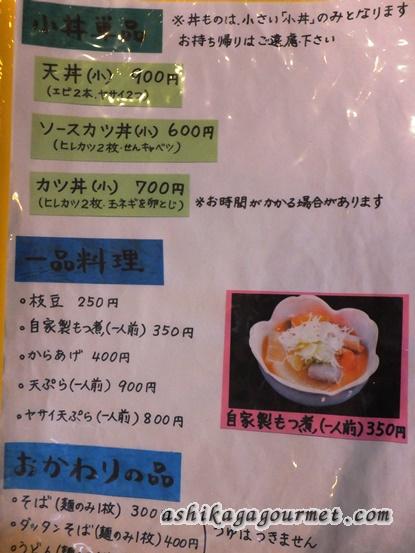 小丼単品
※丼ものは、小さい「小丼」のみとなります
お持ち帰りはご遠慮下さい
天丼(小) 900円
(エビ2本、ヤサイ2つ)
ソースカツ丼(小) 600円
(ヒレカツ2枚・せんキャベツ)
カツ丼(小) 700円
(ヒレカツ2枚・玉ネギを卵とじ)
※お時間がかかる場合があります
一品料理
・枝豆 250円
・自家製もつ煮(一人前) 350円
・からあげ 400円
・天ぷら(一人前) 900円
・ヤサイ天ぷら(一人前) 800円
自家製もつ煮(一人前)350円
おかわりの品
・そば(麺のみ1枚) 300
・ダッタンそば(麺のみ1枚)400円
つゆはつきません
・うどん(麺
ashikagagourmet.com